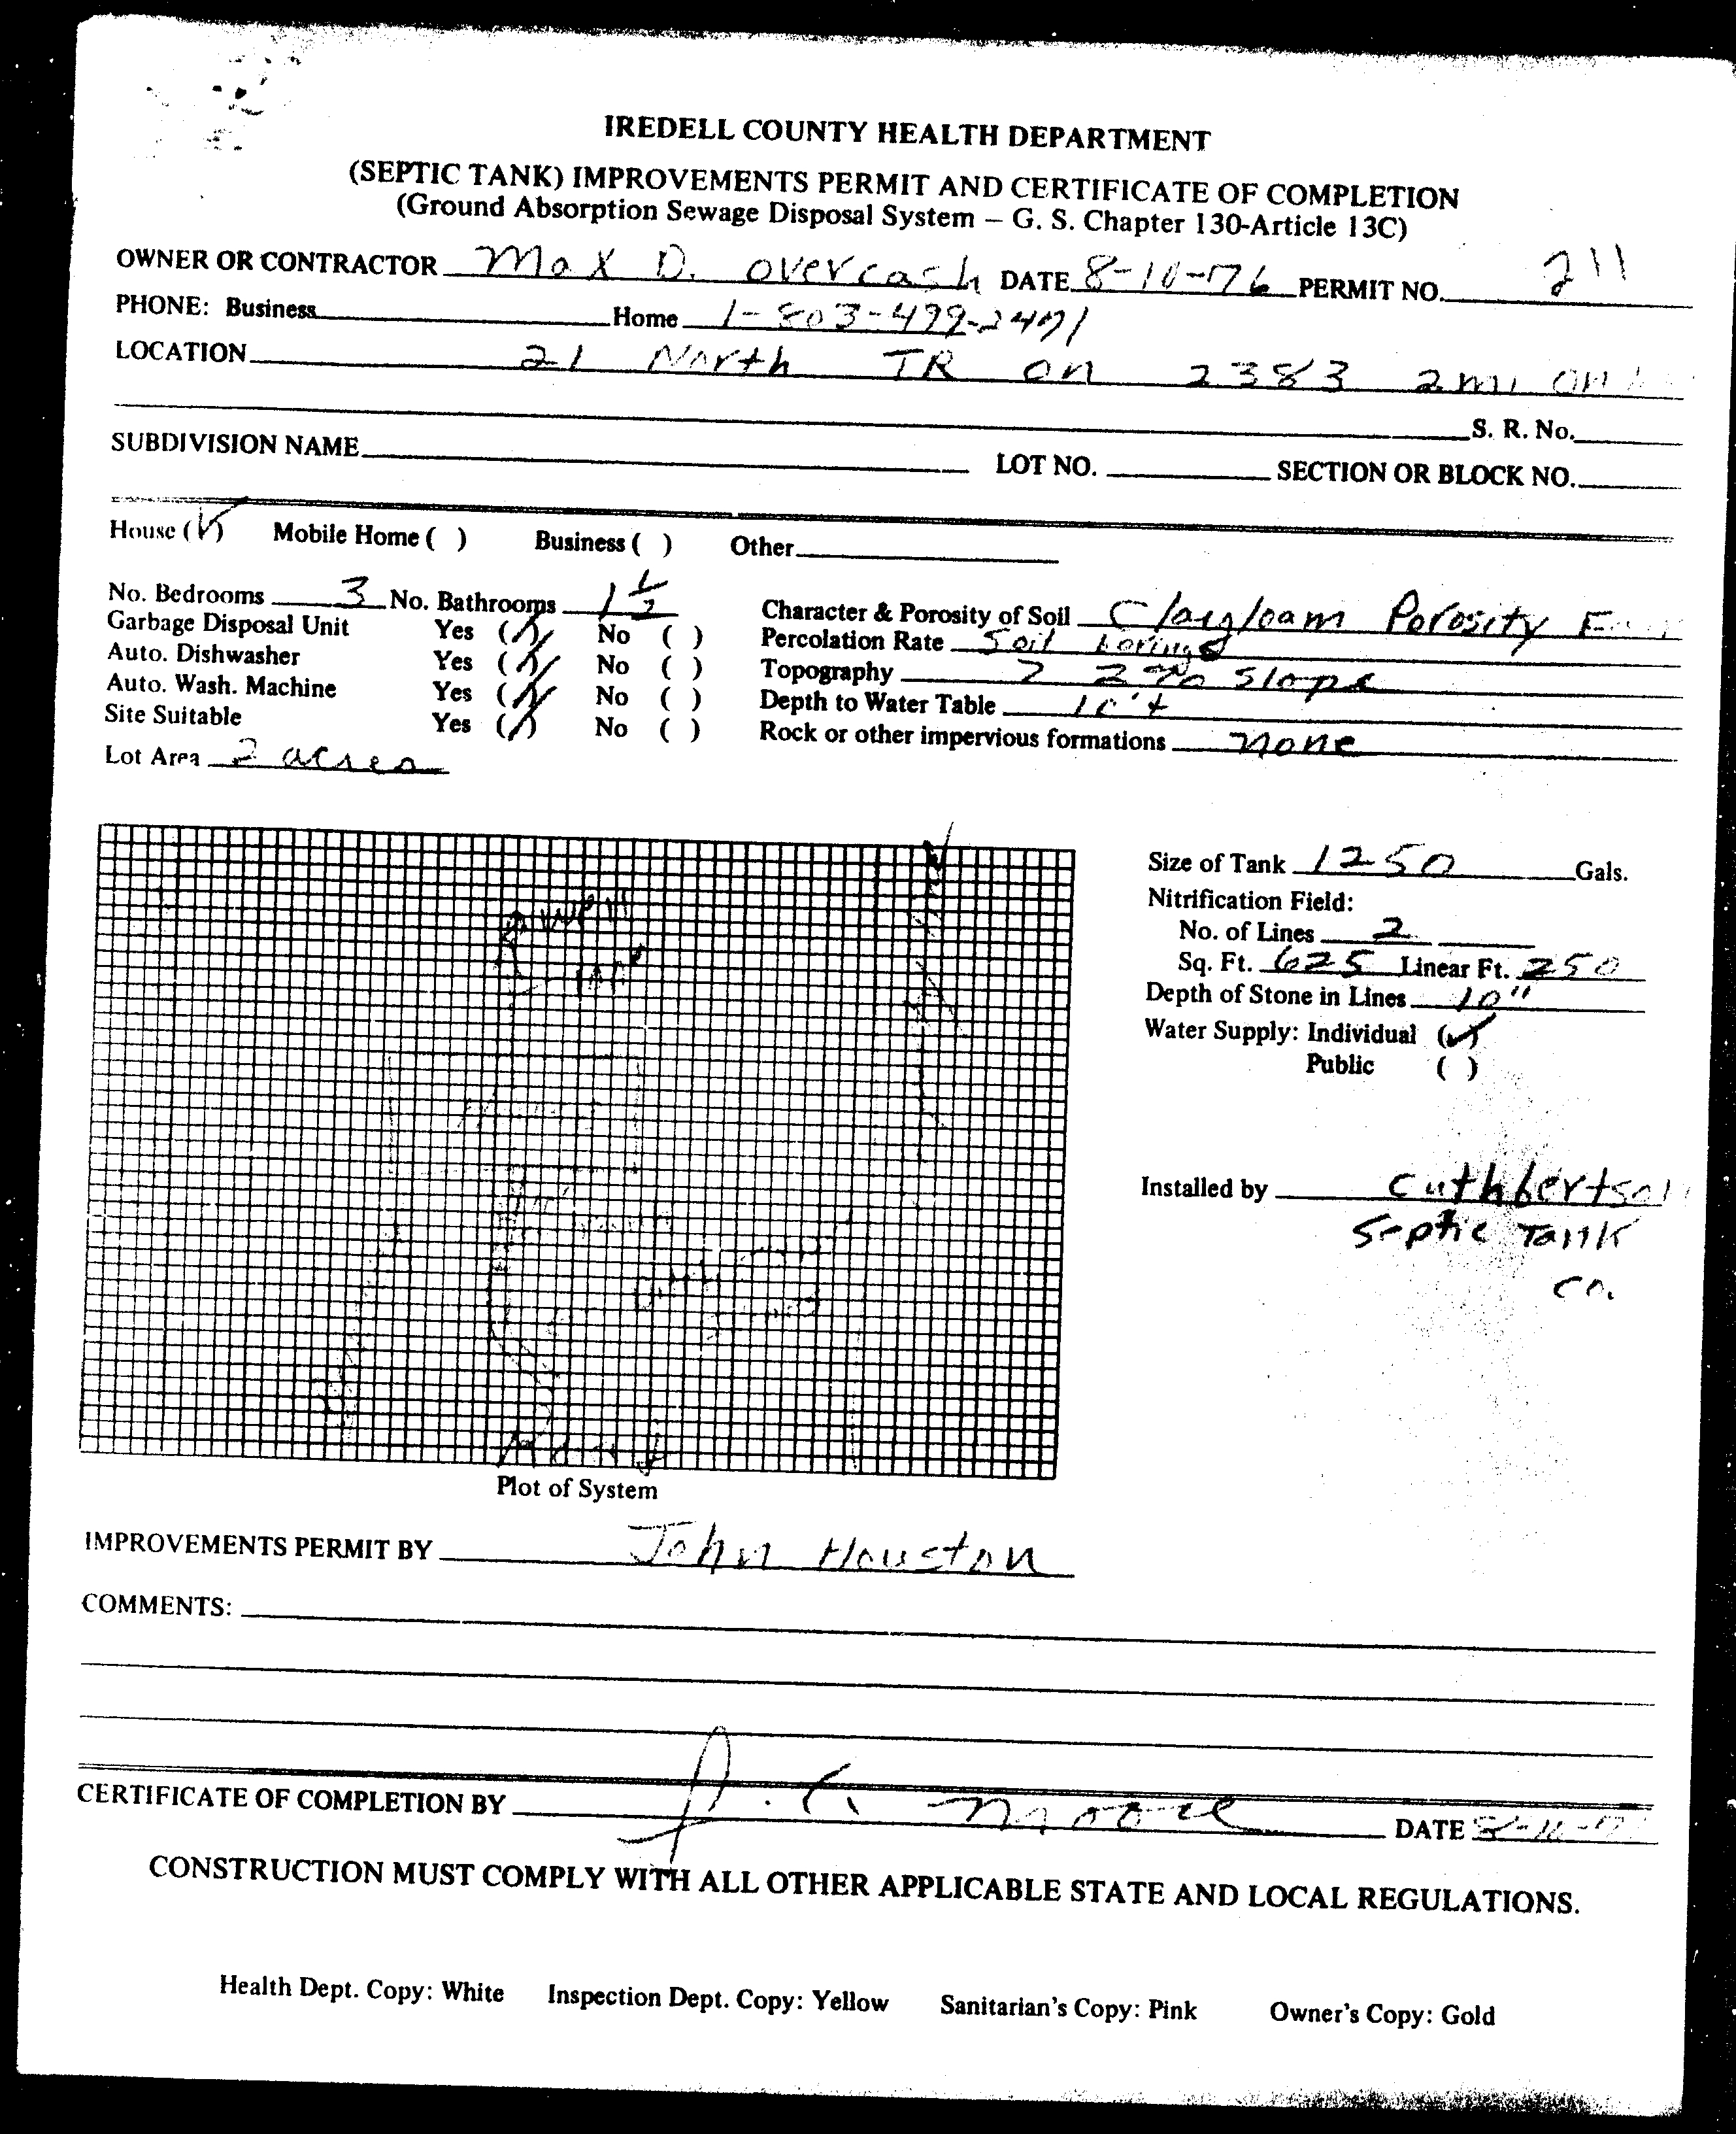 IREDELL COUNTY HEALTH DEPARTMENT
(SEPTIC TANK) IMPROVEMENTS PERMIT AND CERTIFICATE OF COMPLETION
(Ground Absorption Sewage Disposal System – G. S. Chapter 130-Article 13C)
OWNER OR CONTRACTOR Max D. overcash DATE 8-10-76 PERMIT NO. 211
PHONE: Business Home 1-803-499-2471
LOCATION 21 North TR on 2383 2 mi on
S. R. No.
SUBDIVISION NAME LOT NO. SECTION OR BLOCK NO.
House (✓) Mobile Home ( ) Business ( ) Other
No. Bedrooms 3 No. Bathrooms 1 1/2 Character & Porosity of Soil Clayloam Porosity
Garbage Disposal Unit Yes (✓) No ( ) Percolation Rate Soil borings
Auto. Dishwasher Yes (✓) No ( ) Topography > 2% slope
Auto. Wash. Machine Yes (✓) No ( ) Depth to Water Table 10'+
Site Suitable Yes (✓) No ( ) Rock or other impervious formations none
Lot Area 2 acres
Size of Tank 1250 Gals.
Nitrification Field:
No. of Lines 2
Sq. Ft. 625 Linear Ft. 250
Depth of Stone in Lines 10"
Water Supply: Individual (✓)
Public ( )
Installed by Cuthbertson
Septic Tank
Co.
well
Plot of System
IMPROVEMENTS PERMIT BY John Houston
COMMENTS:
CERTIFICATE OF COMPLETION BY Moore DATE
CONSTRUCTION MUST COMPLY WITH ALL OTHER APPLICABLE STATE AND LOCAL REGULATIONS.
Health Dept. Copy: White Inspection Dept. Copy: Yellow Sanitarian's Copy: Pink Owner's Copy: Gold